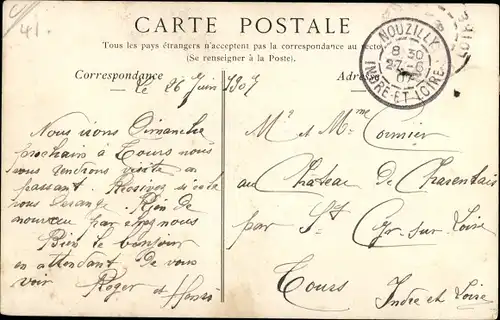 41.
CARTE POSTALE
Tous les pays étrangers n'acceptent pas la correspondance au recto
(Se renseigner à la Poste).
Correspondance
Adresse
NOUZILLY
8 30
27-6
07
INDRE-ET-LOIRE
Le 26 Juin 1907
Nous irons Dimanche
prochain à Tours nous
vous rendrons visite en
passant. Récrivez si cela
vous dérange. Rien de
nouveau par chez nous
Bien le bonjour
en attendant de vous
voir Roger et Henri
Mr et Mme Cormier
au Château De Charentais
par St Cyr-sur-Loire
Tours
Indre et Loire